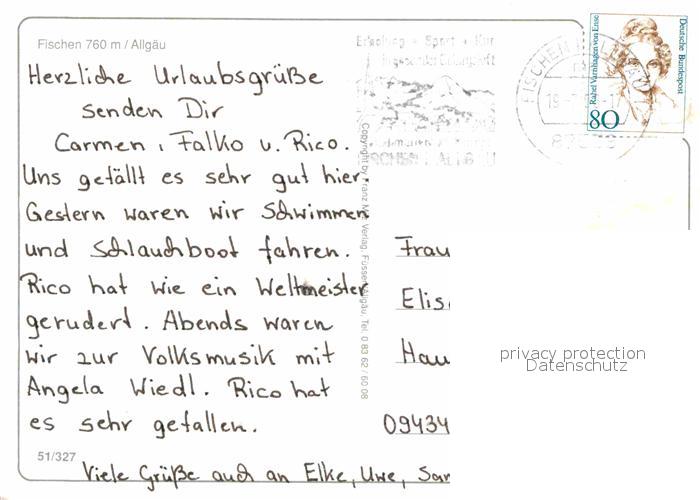 Fischen 760 m / Allgäu
Herzliche Urlaubsgrüße
senden Dir
Carmen, Falko u. Rico.
Uns gefällt es sehr gut hier.
Gestern waren wir Schwimmen
und Schlauchboot fahren.
Rico hat wie ein Weltmeister
gerudert. Abends waren
wir zur Volksmusik mit
Angela Wiedl. Rico hat
es sehr gefallen.
51/327
Viele Grüße auch an Elke, Uwe,
Copyright by Franz Verlag, Füssen/Allgäu, Tel. 0 83 62 / 60 08
Erholung Sport + Kur
FISCHEN I. ALLGÄU
Rahel Varnhagen von Ense
Deutsche Bundespost
80
Frau
09434
privacy protection
Datenschutz